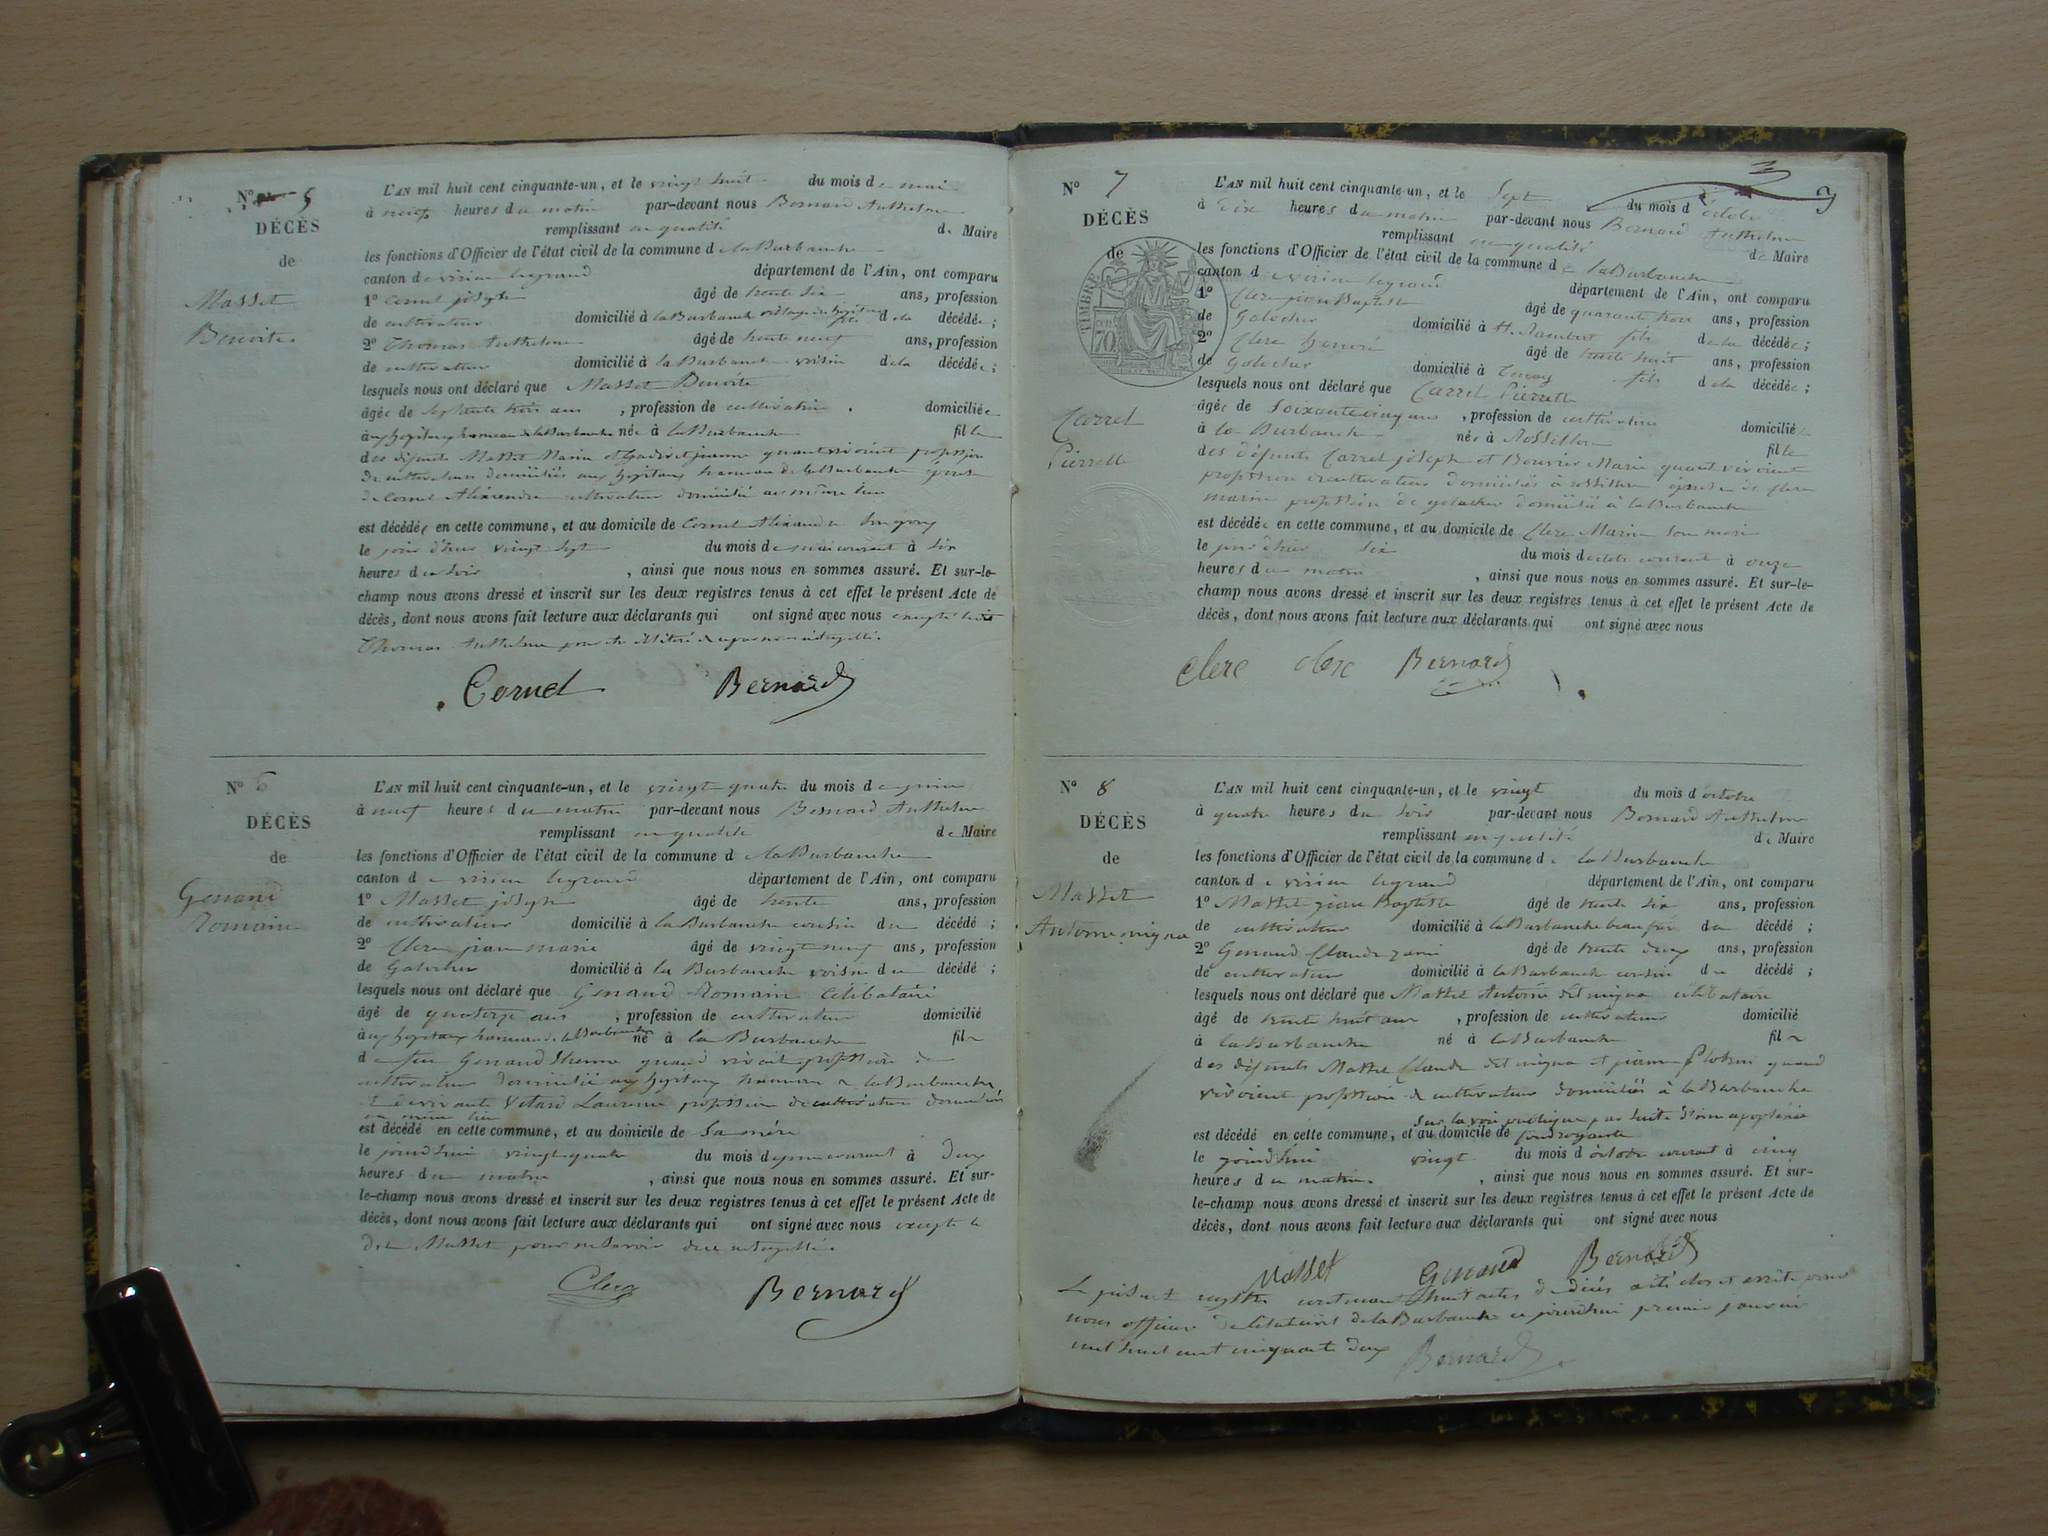 N° 5
DÉCÈS
de
Masset
Benoite
L'AN mil huit cent cinquante-un, et le vingt huit du mois de mai
à neuf heures du matin par-devant nous Bernard Anthelme
remplissant en qualité de Maire
les fonctions d'Officier de l'état civil de la commune de la Burbanche
canton de virieu legrand département de l'Ain, ont comparu
1° Cornel joseph âgé de trente six ans, profession
de cultivateur domicilié à la Burbanche fils de la décédée ;
2° Thomas Anthelme âgé de trente neuf ans, profession
de cultivateur domicilié à la Burbanche voisin de la décédée ;
lesquels nous ont déclaré que Masset Benoite
âgée de septante trois ans , profession de cultivatrice . domiciliée
aux hopitaux hameau de la Burbanche née à la Burbanche fille
des défunts Masset Marin et jeanne quand vivoient profession
de cultivateurs domiciliés aux hopitaux hameau de la Burbanche épouse
de Cornel Aléxandre cultivateur domicilié au même lieu
est décédée en cette commune, et au domicile de Cornel Alexandre
le jour d'hier vingt sept du mois de mai courant à six
heures du soir , ainsi que nous nous en sommes assuré. Et sur-le-
champ nous avons dressé et inscrit sur les deux registres tenus à cet effet le présent Acte de
décès, dont nous avons fait lecture aux déclarants qui ont signé avec nous excepté
Thomas Anthelme pour être illitéré
Cornel Bernard
N° 6
DÉCÈS
de
Genand
Romain
L'AN mil huit cent cinquante-un, et le vingt quatre du mois de juin
à neuf heures du matin par-devant nous Bernard Anthelme
remplissant en qualité de Maire
les fonctions d'Officier de l'état civil de la commune de la Burbanche
canton de virieu legrand département de l'Ain, ont comparu
1° Masset joseph âgé de trente ans, profession
de cultivateur domicilié à la Burbanche cousin du décédé ;
2° Clerc jean marie âgé de vingt neuf ans, profession
de Galocher domicilié à la Burbanche voisin du décédé ;
lesquels nous ont déclaré que Genand Romain célibataire
âgé de quatorze ans , profession de cultivateur domicilié
aux hopitaux hameau de la Burbanche né à la Burbanche fils
de feu Genand Etienne quand vivait profession de
cultivateur domicilié aux hopitaux hameau de la Burbanche,
et de vivante Vitard Laurence profession de cultivateur domiciliés
au même lieu
est décédé en cette commune, et au domicile de Sa mère
le jourd'hui vingt quatre du mois de juin courant à deux
heures du matin , ainsi que nous nous en sommes assuré. Et sur-
le-champ nous avons dressé et inscrit sur les deux registres tenus à cet effet le présent Acte de
décès, dont nous avons fait lecture aux déclarants qui ont signé avec nous excepté le
dit Masset pour ne savoir
Clerc Bernard
3
N° 7
DÉCÈS
de
TIMBRE
70
Carrel
Pierrette
L'AN mil huit cent cinquante-un, et le Sept du mois d'octobre
à dix heures du matin par-devant nous Bernard Anthelme
remplissant en qualité de Maire
les fonctions d'Officier de l'état civil de la commune de la Burbanche
canton de virieu legrand département de l'Ain, ont comparu
1° Clerc jean Baptiste âgé de quarante trois ans, profession
de Galocher domicilié à St. Rambert fils de la décédée ;
2° Clerc honoré âgé de trente huit ans, profession
de Galocher domicilié à Tenay fils de la décédée ;
lesquels nous ont déclaré que Carrel Pierrette
âgée de Soixante cinq ans , profession de cultivatrice domiciliée
à la Burbanche née à Rossillon fille
des défunts Carrel joseph et Bouvier Marie quand vivoient
profession de cultivateur domiciliés à rossillon épouse de Clerc
marin profession de galocher domicilié à la Burbanche
est décédée en cette commune, et au domicile de Clerc Marin Son mari
le jour d'hier six du mois d'octobre courant à onze
heures du matin , ainsi que nous nous en sommes assuré. Et sur-le-
champ nous avons dressé et inscrit sur les deux registres tenus à cet effet le présent Acte de
décès, dont nous avons fait lecture aux déclarants qui ont signé avec nous
clerc clerc Bernard
N° 8
DÉCÈS
de
Masset
Antoine
L'AN mil huit cent cinquante-un, et le vingt du mois d'octobre
à quatre heures du soir par-devant nous Bernard Anthelme
remplissant en qualité de Maire
les fonctions d'Officier de l'état civil de la commune de la Burbanche
canton de virieu legrand département de l'Ain, ont comparu
1° Masset jean Baptiste âgé de trente six ans, profession
de cultivateur domicilié à la Burbanche beau frère du décédé ;
2° Genand Claude âgé de trente deux ans, profession
de cultivateur domicilié à la Burbanche cousin du décédé ;
lesquels nous ont déclaré que Masset Antoine dit célibataire
âgé de trente huit ans , profession de cultivateur domicilié
à la Burbanche né à la Burbanche fils
des défunts Masset Claude dit et quand
vivoient profession de cultivateur domiciliés à la Burbanche
Sur la voie publique par suite d'une apoplexie
est décédé en cette commune, et au domicile de foudroyante
le jourd'hui vingt du mois d'octobre courant à cinq
heures du matin. , ainsi que nous nous en sommes assuré. Et sur-
le-champ nous avons dressé et inscrit sur les deux registres tenus à cet effet le présent Acte de
décès, dont nous avons fait lecture aux déclarants qui ont signé avec nous
Masset Genand Bernard
Le présent registre contenant huit actes de décés a été clos et arrêté par
nous officier de l'état civil de la Burbanche ce jourd'hui premier janvier
mil huit cent cinquante deux Bernard